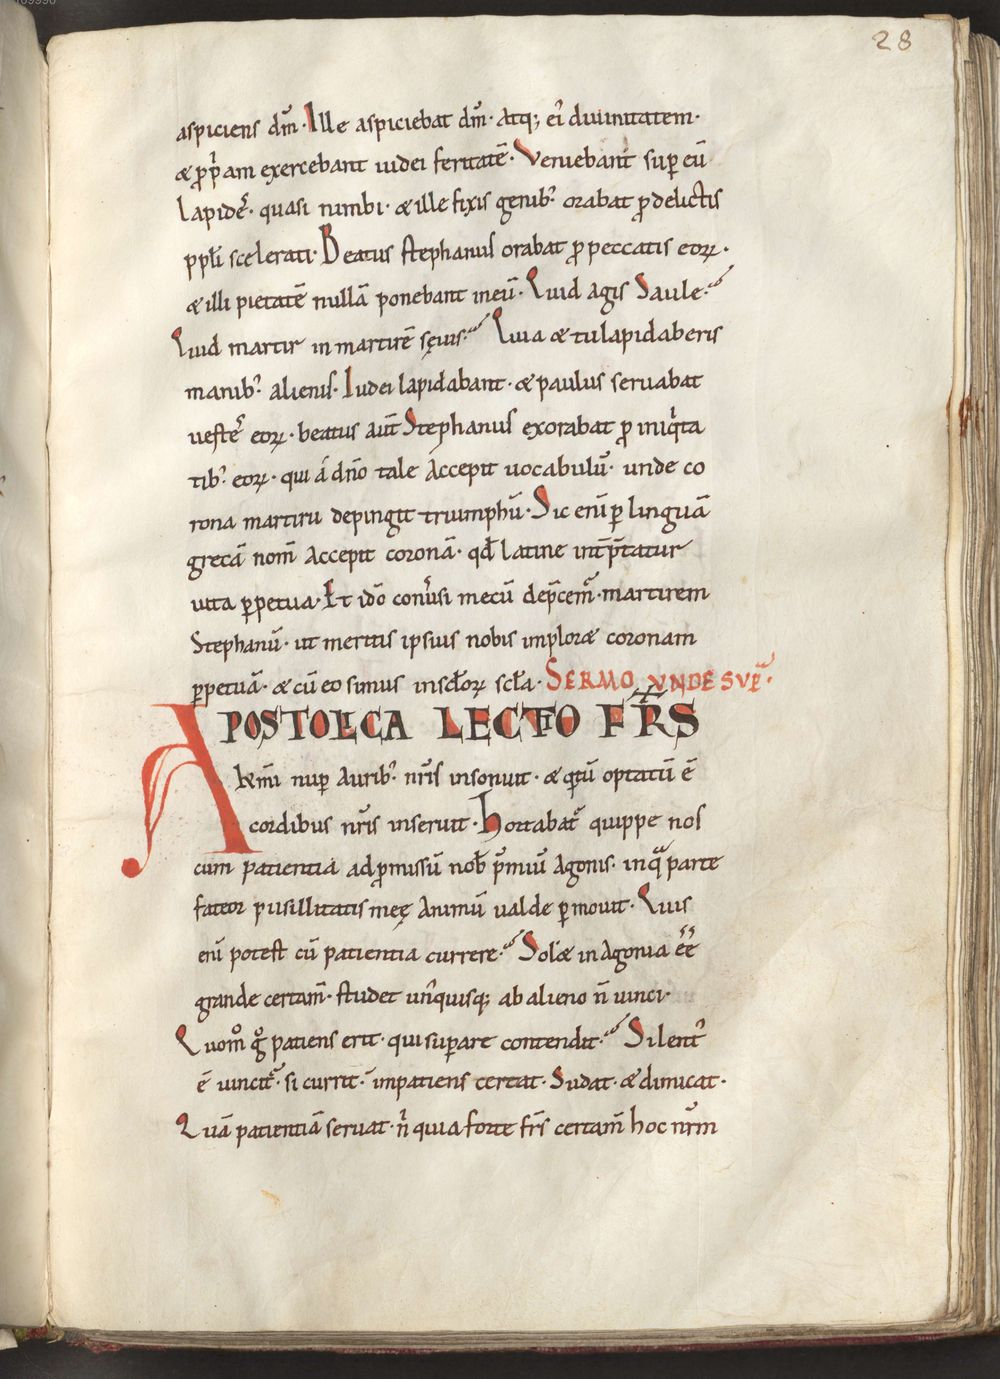 28
aspiciens dm̄. Ille aspiciebat dm̄. Atq; ei᾽ diuinitatem.
& p̱p͛am exercebant iudei feritatē. Veniebant suꝑ eū
lapide᷒. quasi nimbi. & ille fixis genib᾽. orabat ꝓ delictis
ppli̅ scelerati. Beatus stephanus orabat ꝓ peccatis eoꝝ.
& illi pietatē nullā ponebant in eū. Quid agis Saule?
Quid martir in martirē sęuis? Quia & tu lapidaberis
manib᾽. alienis. Iudei lapidabant. & paulus seruabat
ueste᷒ eoꝝ. beatus aut̄ Stephanus exorabat ꝓ iniqͥta
tib᾽. eoꝝ. qui á dn̄o tale Accepit uocabulū. unde co
rona martirii depingit triumphū. Sic enī ꝑ linguā
grecā nom̄ Accepit coronā. qđ latine int̄p̄tatur
uita ꝑpetua. Et idō conu͛si mecū dep̄cem᷒ martirem
Stephanū. ut meritis ipsius nobis implor& coronam
ꝑpetuā. & cū eo simus in scl̄oꝝ scl̄a. SERMO VNDE SVP̄.
APOSTOLICA LECTIO FR̄S
Km̄i nuꝑ Aurib᾽. nr̄is insonuit. & qͣtū optatū ē
cordibus nr̄is inseruit. Hortabat᷒ quippe nos
cum patientia ad ꝓmissū nob̄ p̄miū Agonis. in qͣ parte
fateor pusillitatis meę Animū ualde ꝑmouit. Quis
enī potest cū patientia currere? Sol& in Agonia ēē
grande certam̄. studet un᾽quisq; ab alieno n̄ uinci.
Quom̊ g̊ patiens erit. qui suꝑare contendit? Silent᾽
ē uincit᷒. si currit. īmpatiens certat. Sudat. & dimicat.
Quā patientiā seruat. n͛ quia forte fr̄s certam̄ hoc nr̄m